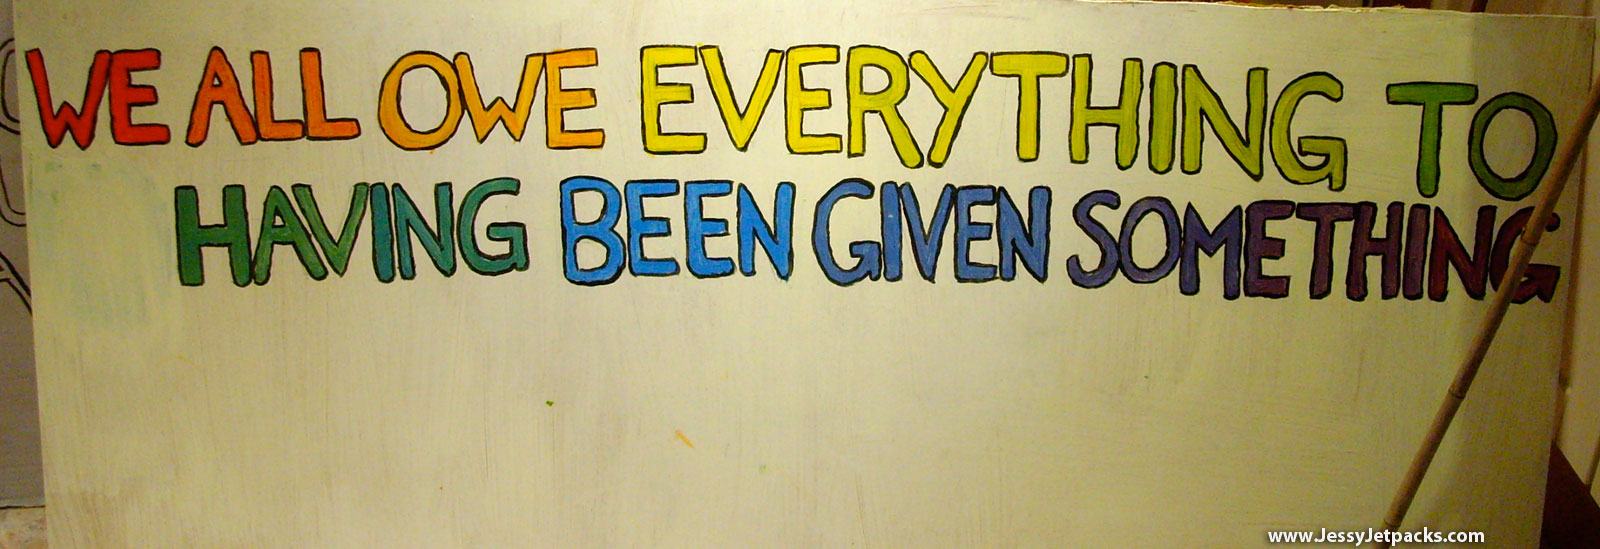 WE ALL OWE EVERYTHING TO
HAVING BEEN GIVEN SOMETHING
www.JessyJetpacks.com